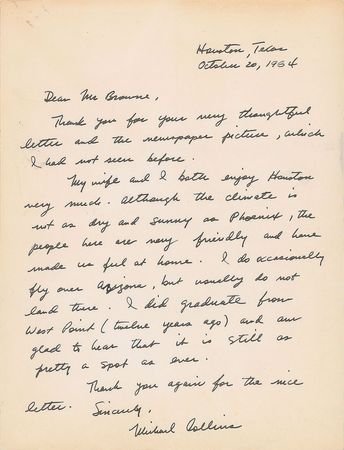 Houston, Texas
October 20, 1964
Dear Mr Browne,
Thank you for your very thoughtful
letter and the newspaper picture, which
I had not seen before.
My wife and I both enjoy Houston
very much. Although the climate is
not as dry and sunny as Phoenix, the
people here are very friendly and have
made us feel at home. I do occasionally
fly over Arizona, but usually do not
land there. I did graduate from
West Point (twelve years ago) and am
glad to hear that it is still as
pretty a spot as ever.
Thank you again for the nice
letter. Sincerely,
Michael Collins